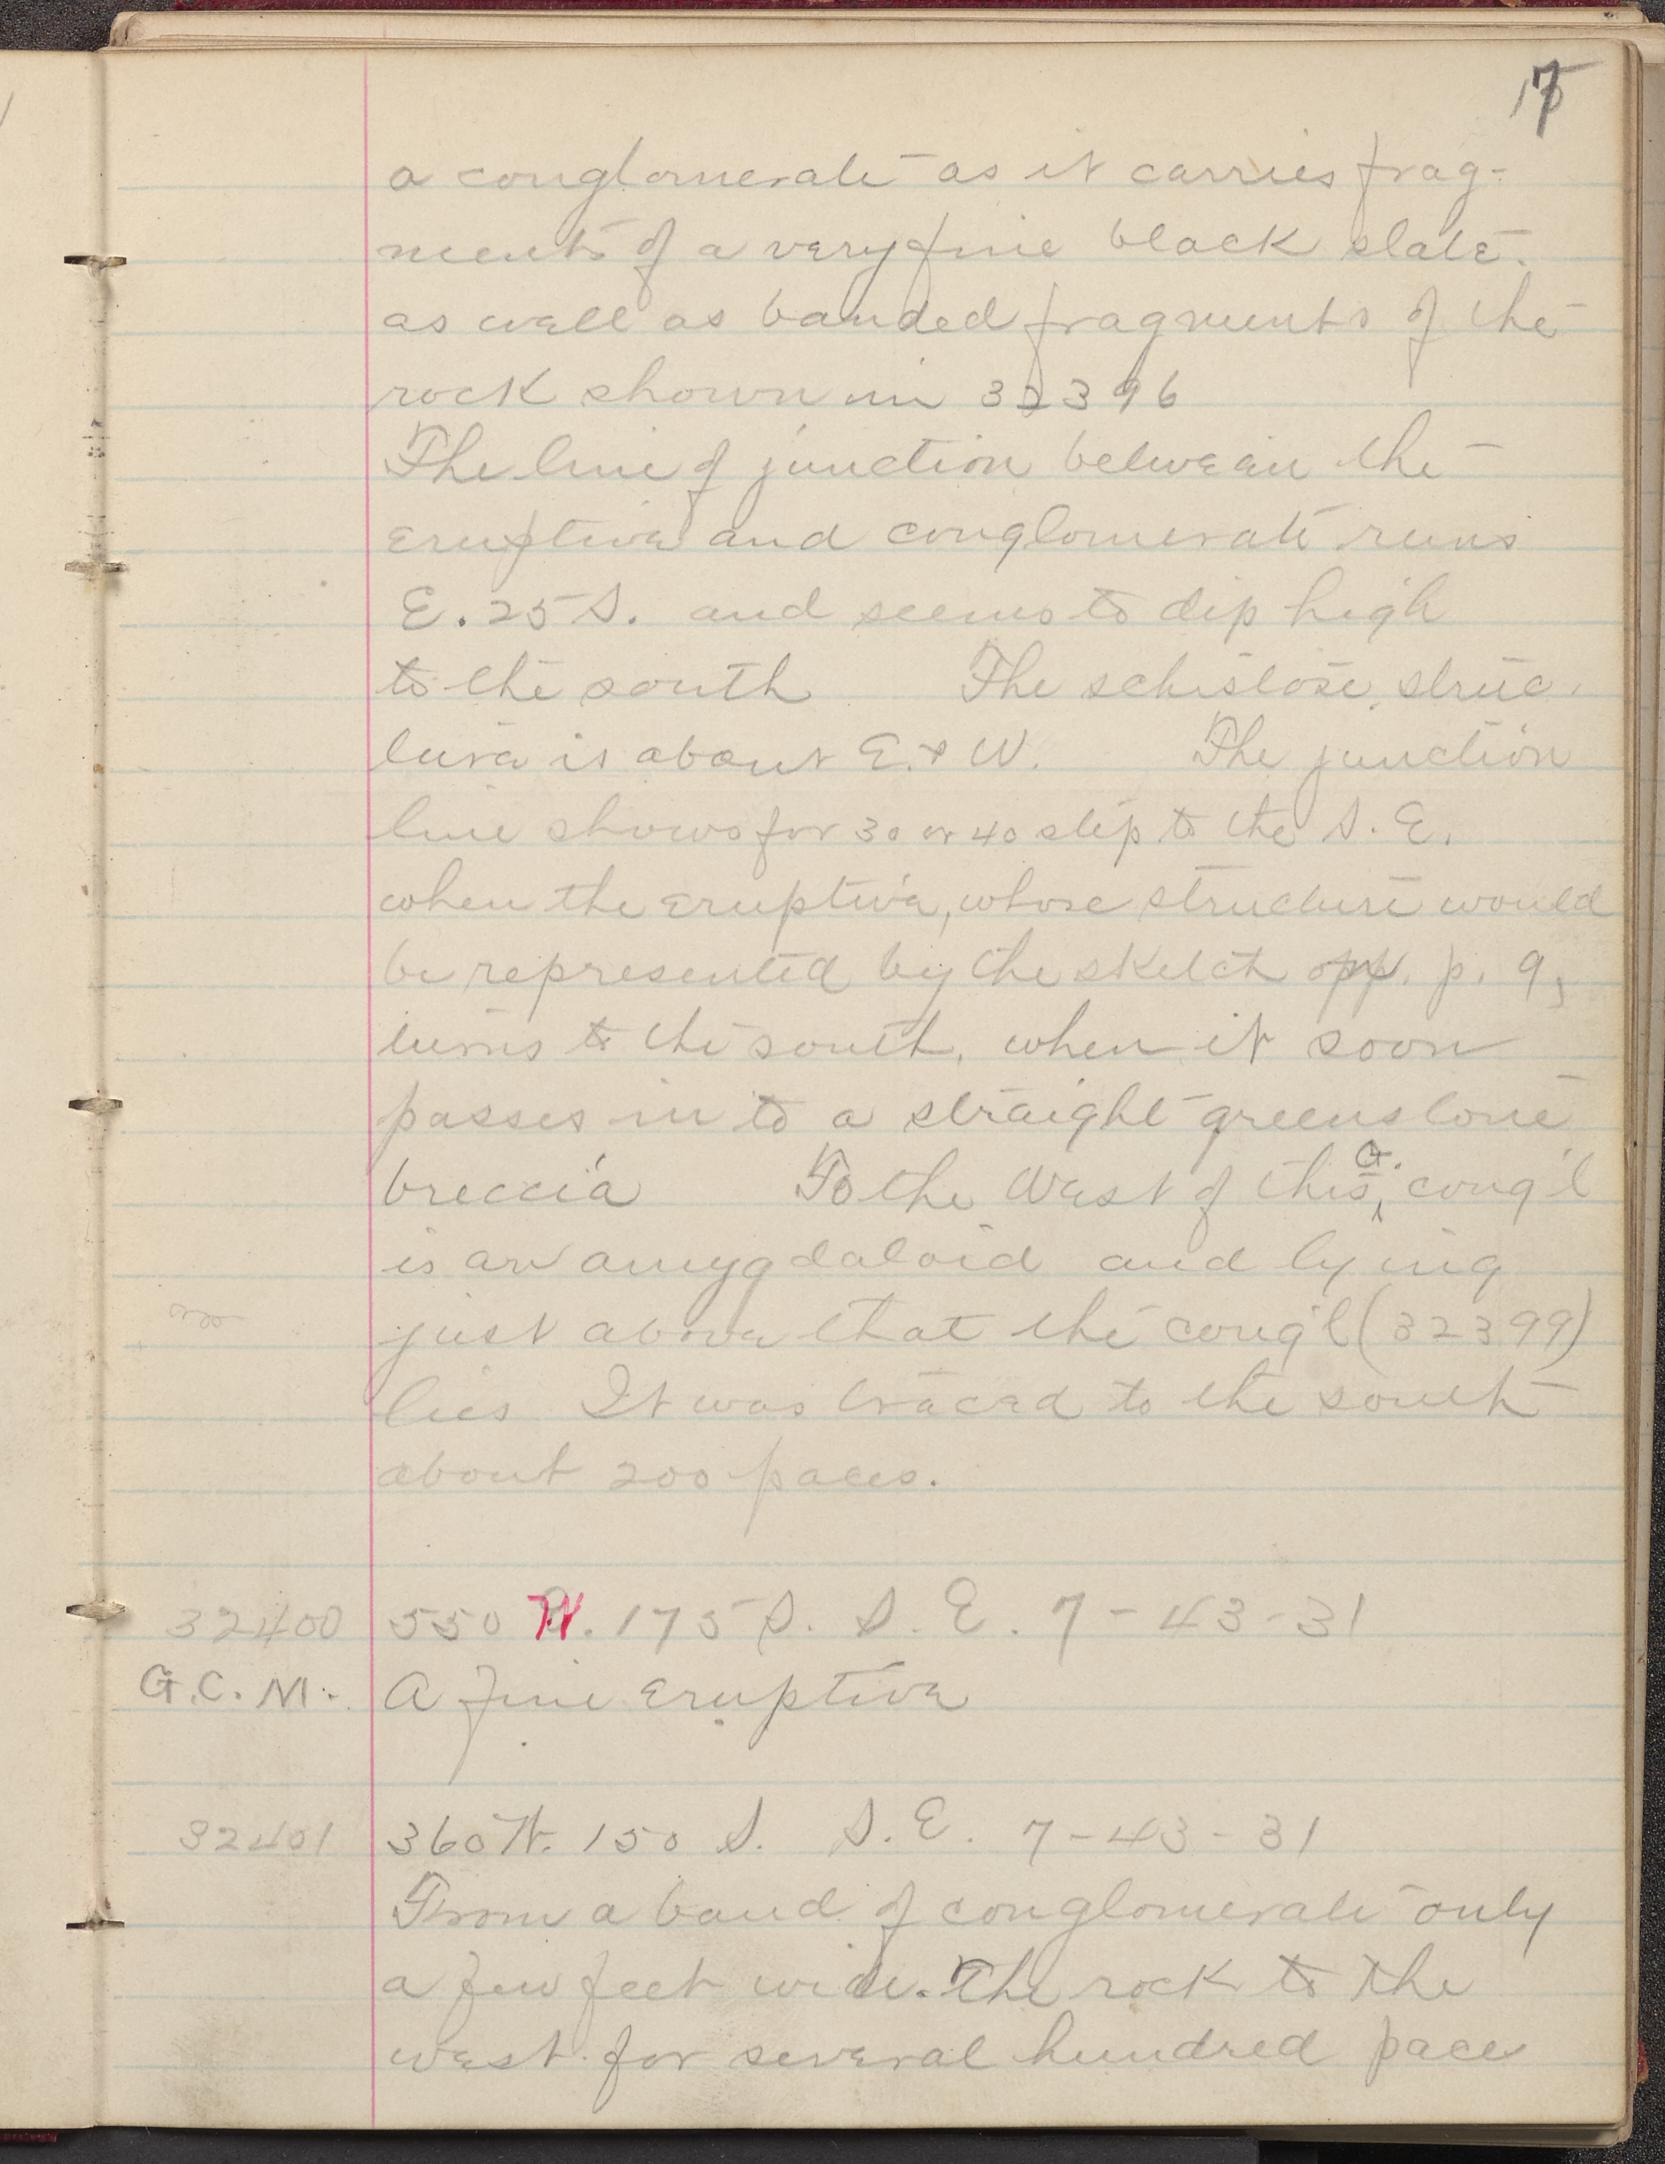 17
a conglomerate as it carries frag-
ments of a very fine black slate.
as well as banded fragments of the
rock shown in 32396
The line of junction between the
eruptive and conglomerate runs
E. 25 S. and seems to dip high
to the south The schistose struc-
ture is about E. & W. The junction
line shows for 30 or 40 step to the S. E.
when the eruptive, whose structure would
be represented by the sketch opp. p. 9,
turns to the south, when it soon
passes in to a straight greenstone
breccia To the West of this, G. cong'l
is an amygdaloid and lying
just above that the cong'l (32399)
lies It was traced to the south
about 200 paces.
32400 550 W. 175 S. S. E. 7-43-31
G. C. M. A fine eruptive
32401 360 W. 150 S. S. E. 7-43-31
From a band of conglomerate only
a few feet wide. The rock to the
west for several hundred pace